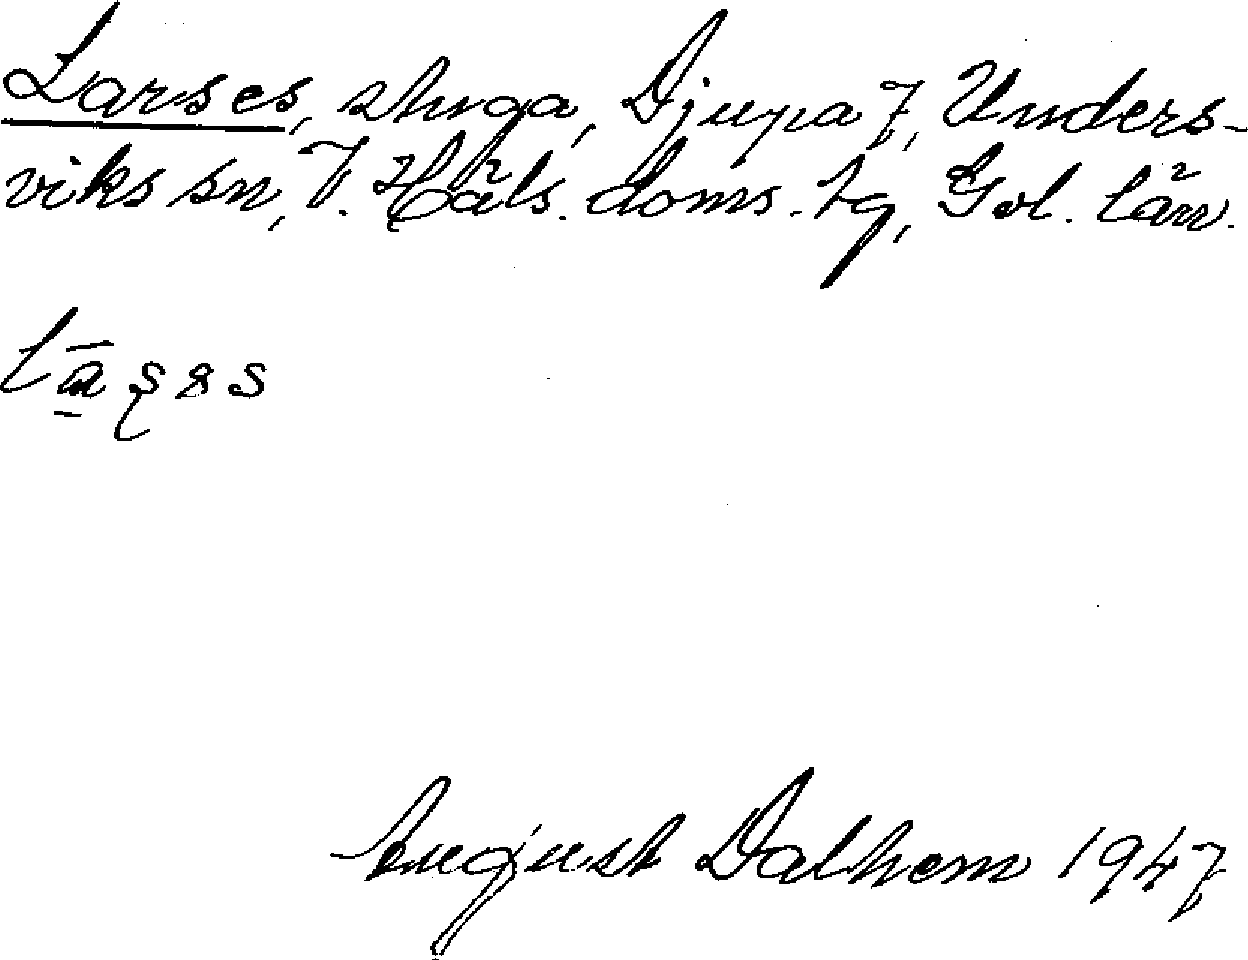 Larses, stuga, Djupa 7, Unders-
viks sn, V. Häls. doms. tg, Gvl. län.
August Dalhem 1947